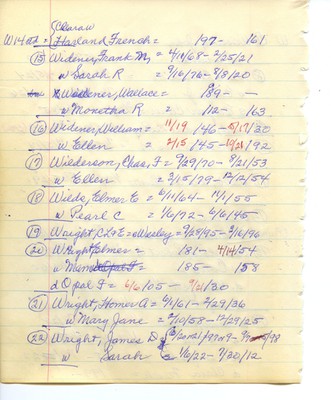 Clara w
W14 Harland French = 197- 161
(15) Widener, Frank M, = 4/10/68 - 2/25/21
w Sarah R = 9/16/76 - 7/8/20
Widener, Wallace = 189- -
w Monetha R = 112- 163
(16) Widener, William = 11/19 146 - 5/17/30
w Ellen = 2/15 145 - 10/21/92
(17) Wiederson, Chas, F = 9/29/70 - 8/21/53
w Ellen = 3/15/79 - 12/2/54
(18) Wilde, Elmer E = 6/11/64 - 11/1/55
w Pearl C = 1/6/72 - 6/6/45
(19) Wright, C L & E = Wesley = 7/28/95 - 3/16/96
(20) Wright, Elmer = 181- 4/14/54
w Mam = 185- 158
d Opal F = 6/6/05 - 7/21/30
(21) Wright, Homer A = 4/1/61 - 2/29/36
w Mary Jane = 2/10/58 - 12/29/25
(22) Wright, James D
w Sarah = 1/6/22 - 7/30/12